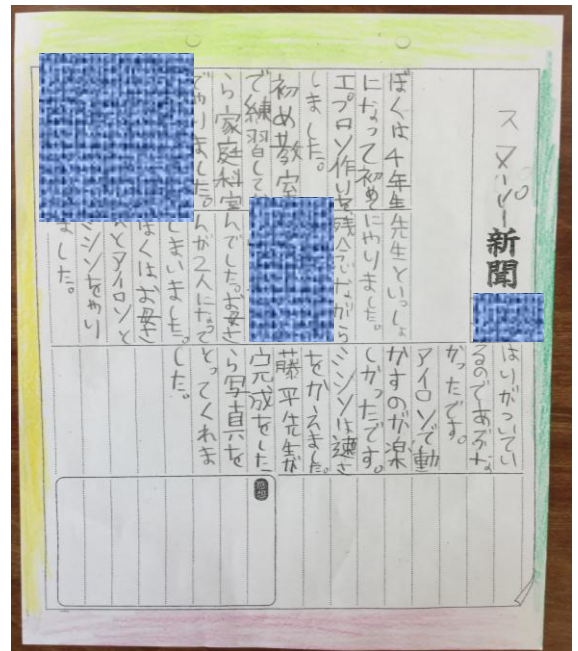 スヌーピー新聞
ぼくは4年生
になって初めて
エプロン作りを
しました。
初め教室
で練習して
ら家庭科室
でやりました。
先生といっしょ
にやりました。
残念ながら
んでした。お母さ
んが2人になって
しまいました。
ぼくはお母さ
とアイロンと
ミシンをやり
ました。
はりがついてい
るのであぶな
かったです。
アイロンで動
かすのが楽
しかったです。
ミシンは速さ
をかえました。
藤平先生が
完成をした
ら写真を
とってくれま
した。
感想